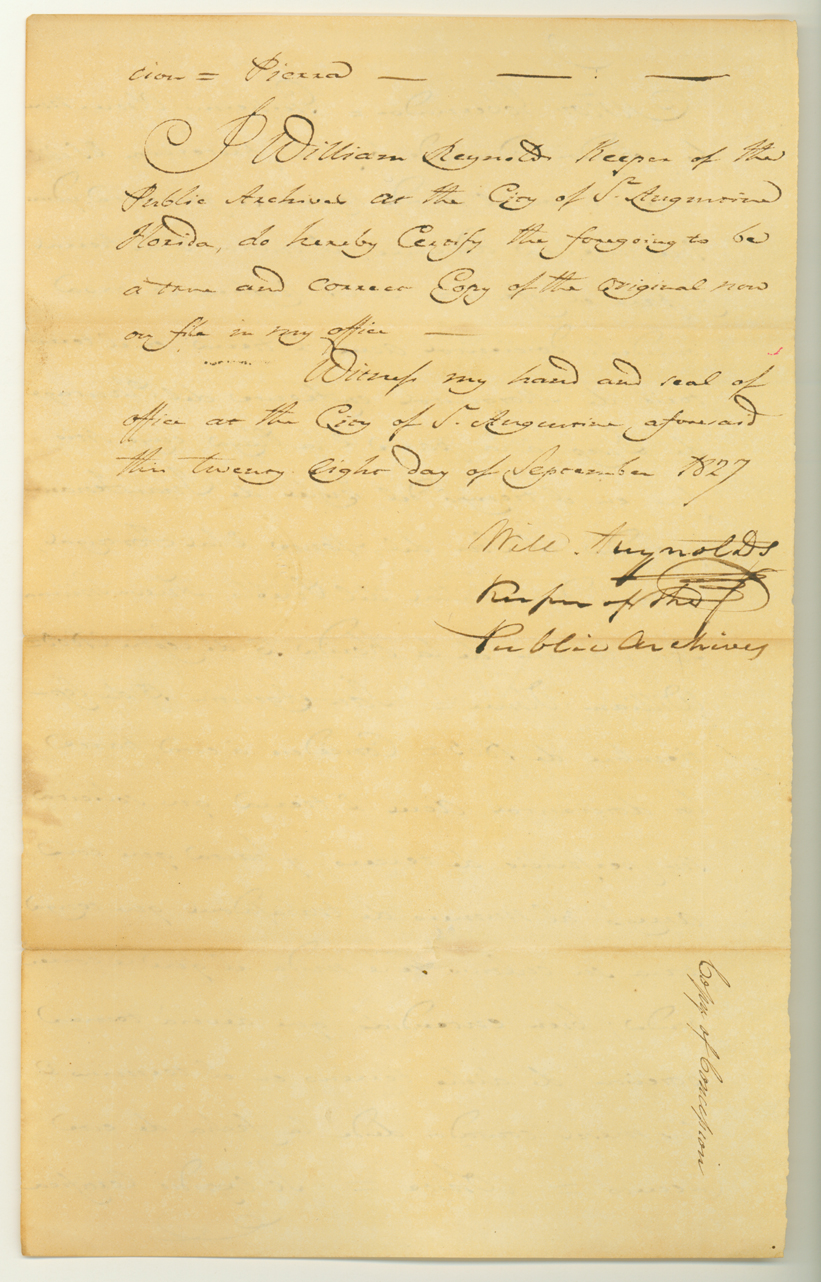 cion = Pierra — — —
I William Reynolds Keeper of the
Public Archives at the City of St. Augustine
Florida, do hereby Certify the foregoing to be
a true and correct Copy of the original now
on file in my office —
Witness my hand and seal of
office at the City of St. Augustine aforesaid
this twenty eight day of September 1827
Will. Reynolds
Keeper of the
Public Archives
Copy of Concession